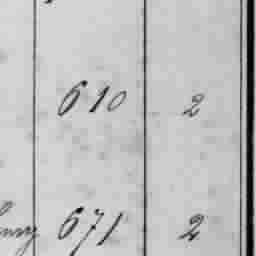 610 2
671 2